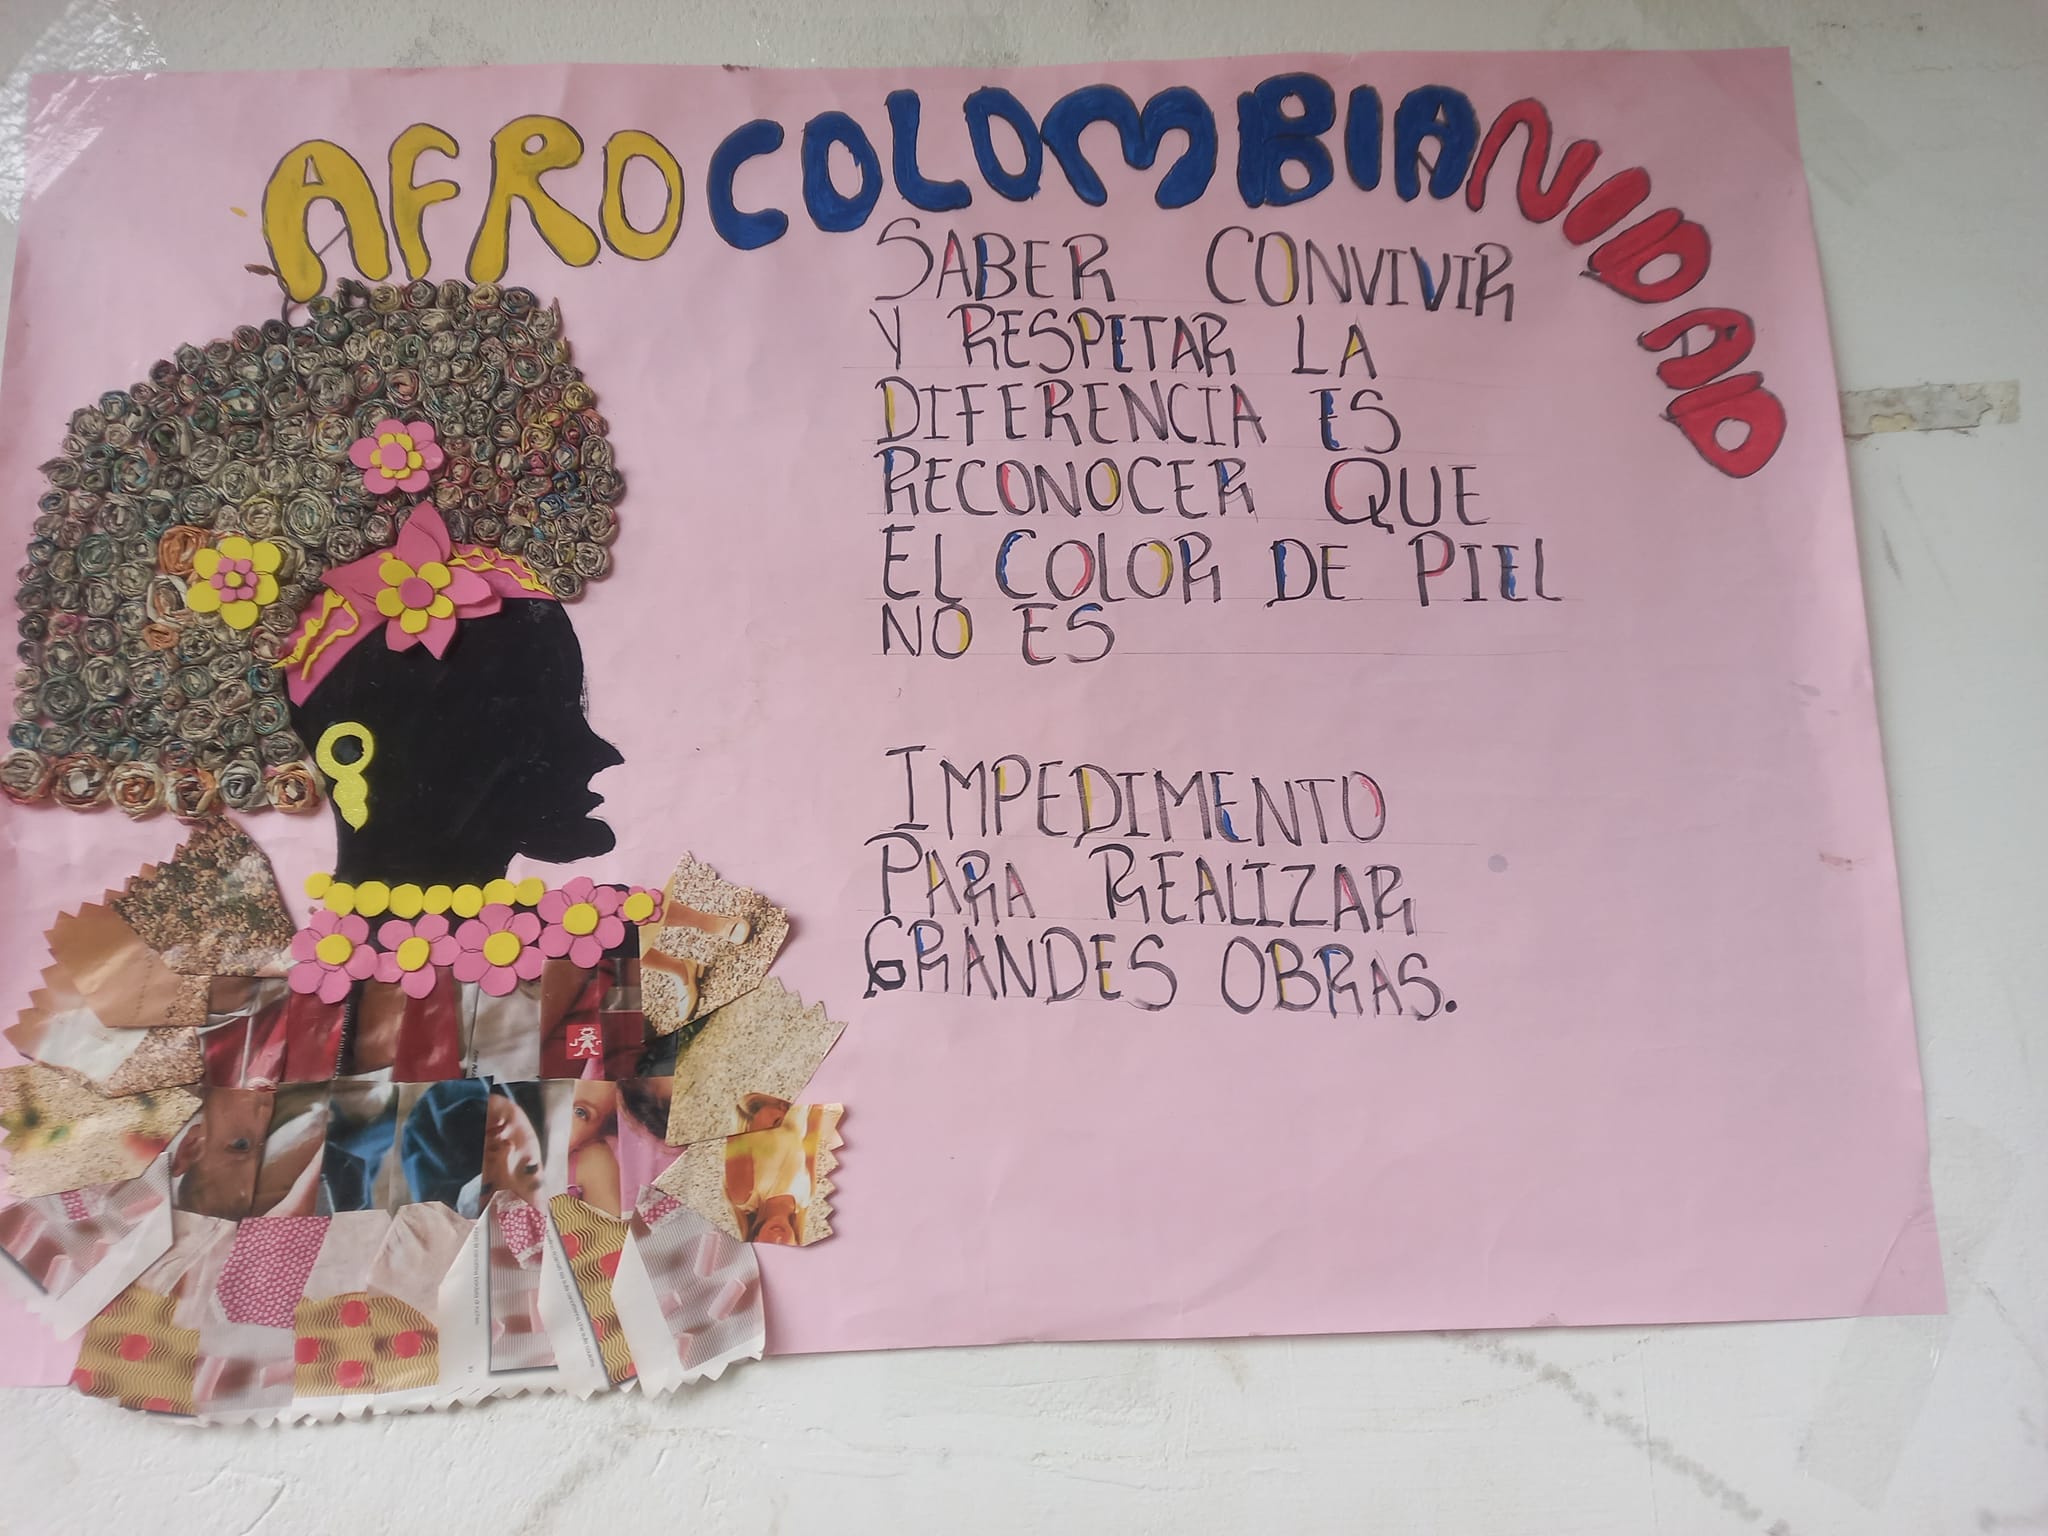 AFROCOLOMBIANIDAD
SABER CONVIVIR
Y RESPETAR LA
DIFERENCIA ES
RECONOCER QUE
EL COLOR DE PIEL
NO ES
IMPEDIMENTO
PARA REALIZAR
GRANDES OBRAS.